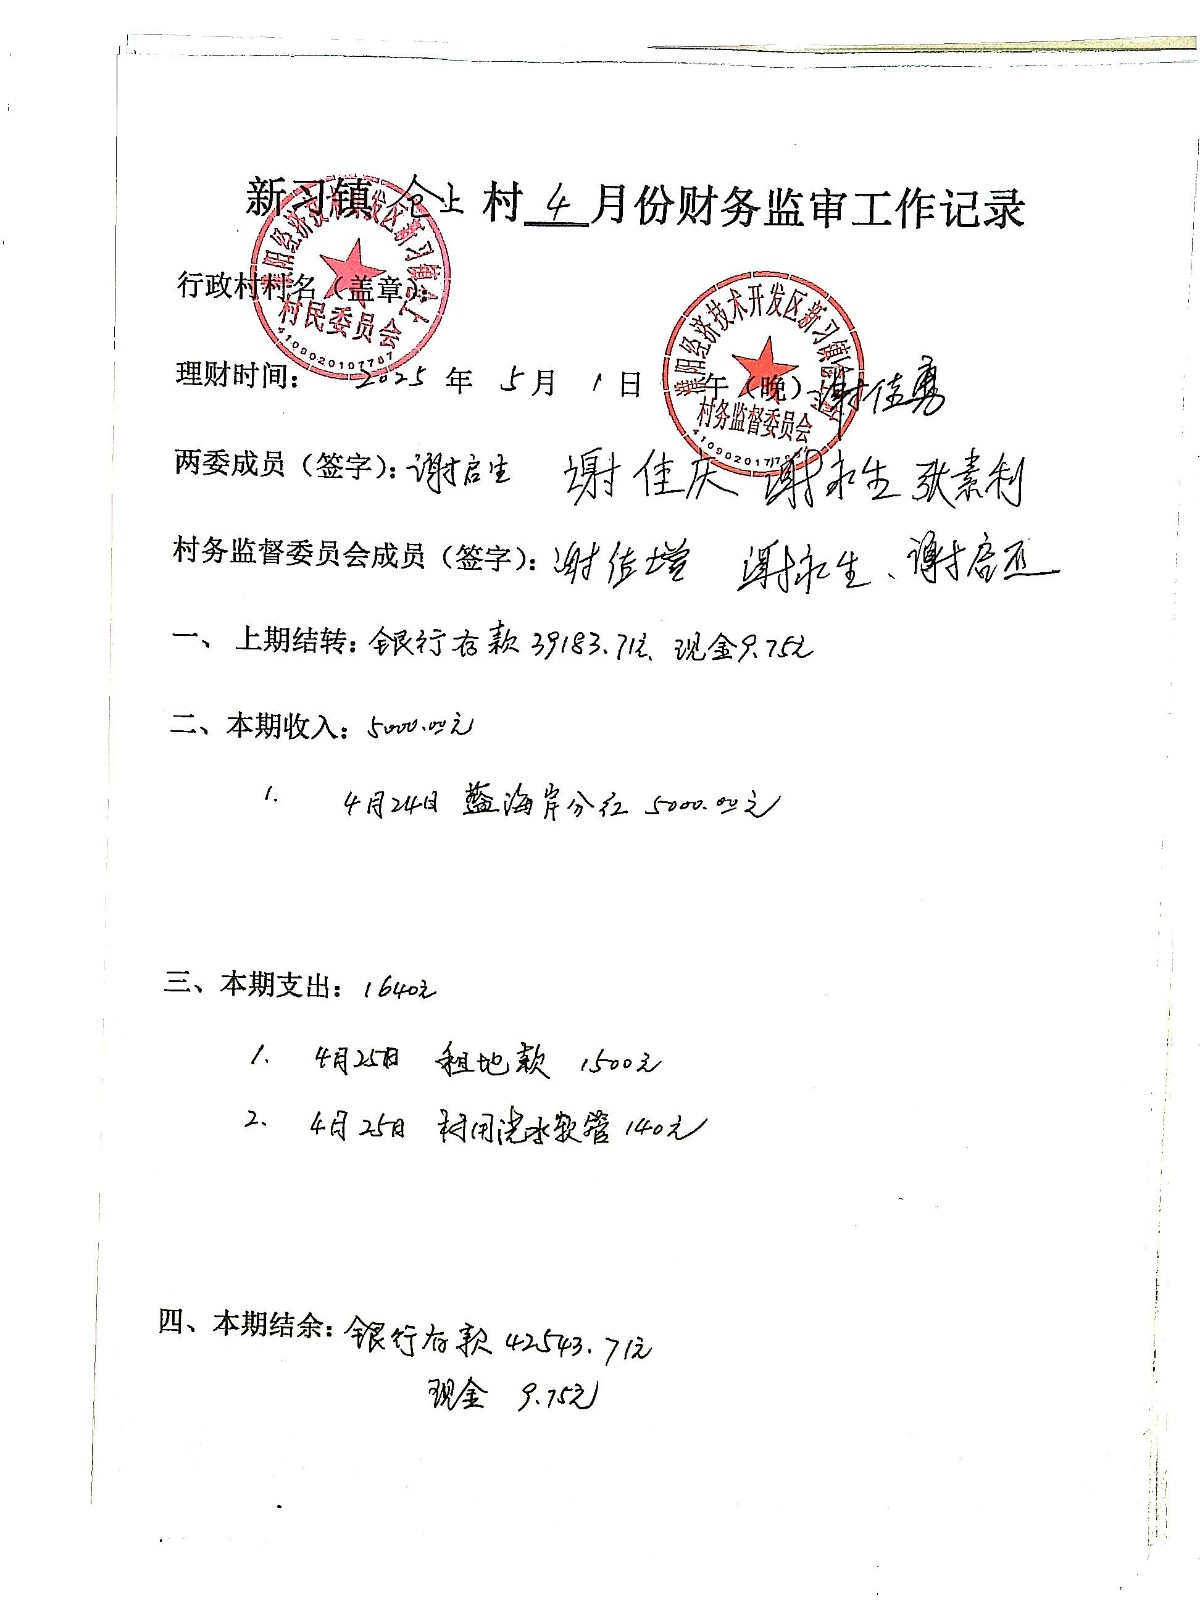 新习镇仓上村4月份财务监审工作记录
行政村村名（盖章）：
理财时间： 2025年5月1日 午（晚） 谢佳勇
两委成员（签字）：谢启生 谢佳庆 谢永生 张素利
村务监督委员会成员（签字）：谢佳增 谢永生、谢启
一、上期结转：银行存款39183.71元、现金9.75元
二、本期收入：5000.00元
1. 4月24日 蓝海岸分红 5000.00元
三、本期支出：1640元
1. 4月25日 租地款 1500元
2. 4月25日 村用浇水软管140元
四、本期结余：银行存款42543.71元
现金 9.75元
濮阳经济技术开发区新习镇仓上
村民委员会
4109020107707
濮阳经济技术开发区新习镇仓上村
村务监督委员会